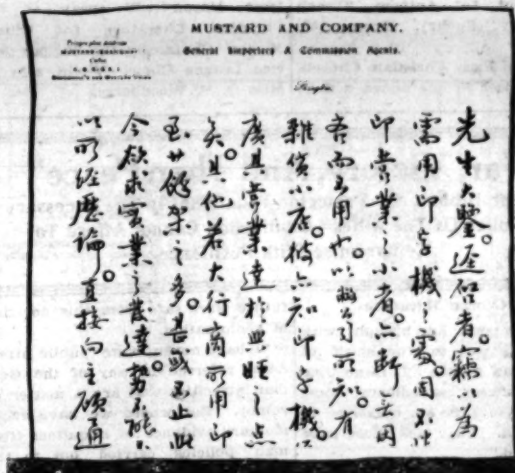 MUSTARD AND COMPANY.
General Importers & Commission Agents.
Telegraphic Address
Shanghai
先生大鑒。逕啓者。竊以為
需用印字機之處。固不
印營業之小者。亦斷無因
吝而至用也。以敝公司所知。有
雜貨小店。彼亦知印字機
廣其營業達於無疆之点
矣。其他若大行商所用印
至廿餘架之多。甚或不止此
今欲求實業之發達。勢不能
以所經歷論。直接向主顧通